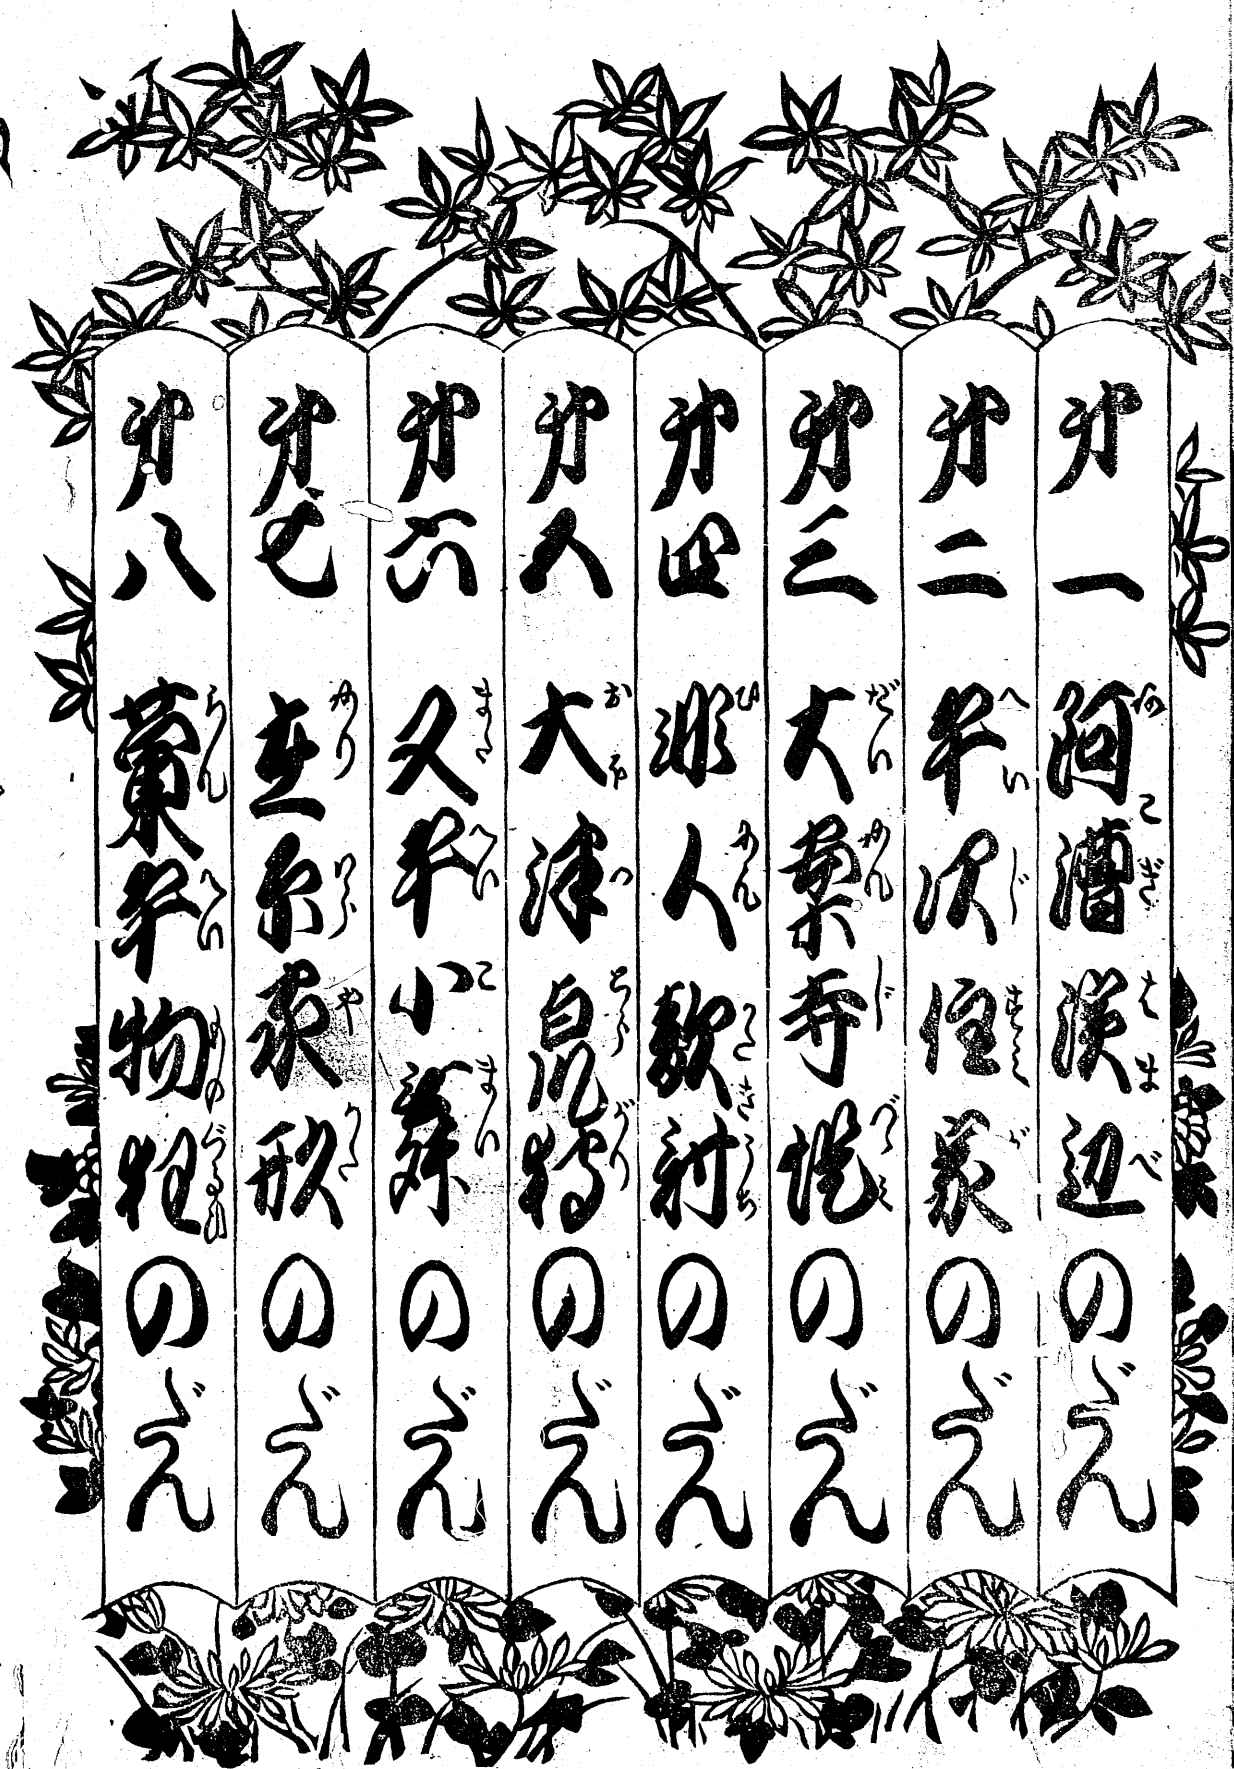 第一 阿漕浜辺のだん
第二 平次住家のだん
第三 大寺堤のだん
第四 非人敵討のだん
第五 大津のだん
第六 又平小舞のだん
第七 在原家形のだん
第八 蘭平物狂のだん